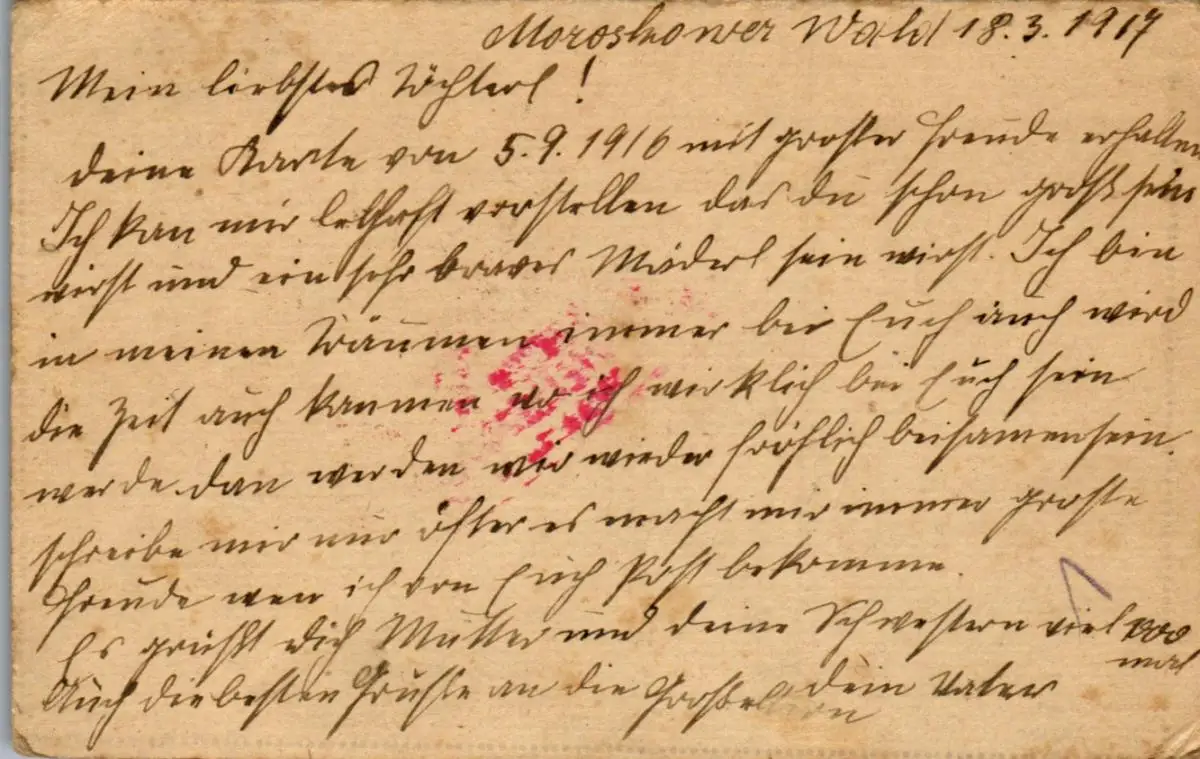 Moroskower Wald 18.3.1917
Mein liebstes Töchterl!
deine Karte von 5.9.1916 mit großer Freude erhalten
Ich kan mir lebhaft vorstellen das du schon groß sein
wirst und ein sehr braves Mäderl sein wirst. Ich bin
in meinen Träumen immer bei Euch auch wird
die Zeit auch kommen wo ich wirklich bei Euch sein
werde. dan werden wir wieder fröhlich beisamensein.
schreibe mir nur öfter es macht mir immer große
Freude wen ich von Euch Post bekomme.
Es grüßt dich Mutter und deine Schwestern viel 1000
mal
Auch die besten Grüße an die Großeltern dein Vater